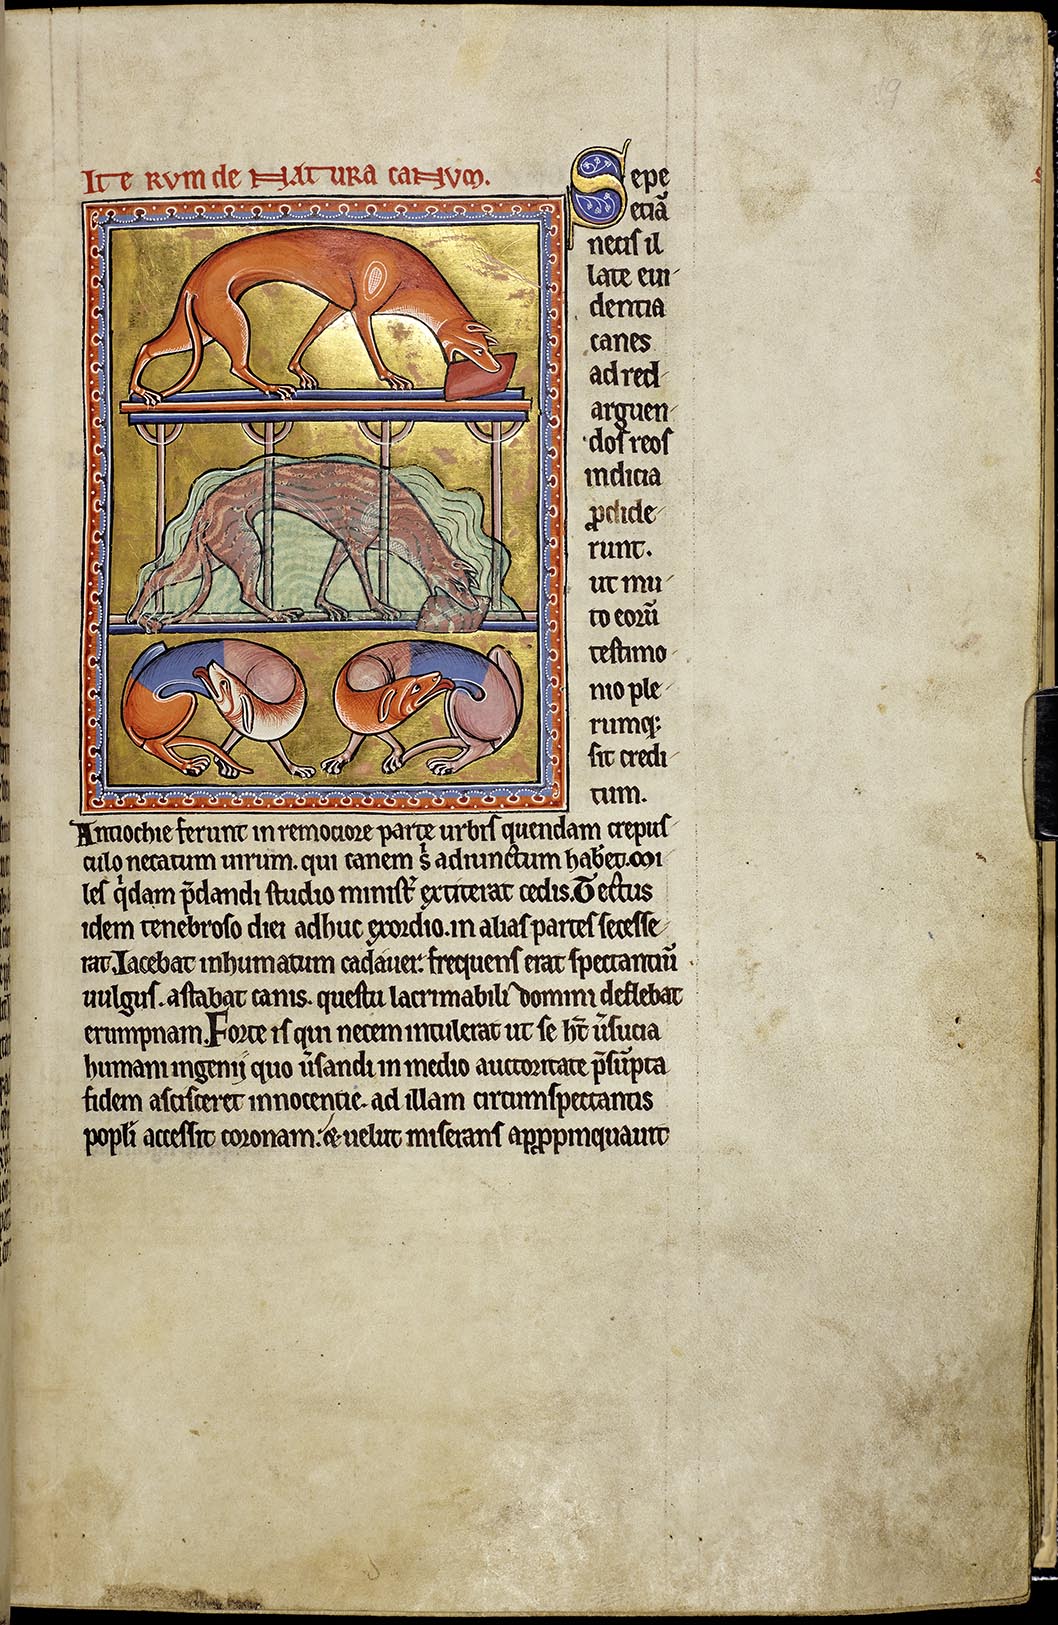 Ite rvm de natura canvm.
Sepe
etiā
necis il
late eui
dentia
canes
ad red
arguen
dos reos
indicia
ꝓdide
runt.
ut mu
to eorū
testimo
nio ple
rumq;
sit credi
tum.
Antiochie ferunt in remociore parte urbis quendam crepus
culo necatum uirum. qui canem s̉ adiunctum haberet. Mi
les q̉dam p̄dandi studio minist̉ extiterat cedis. Tectus
idem tenebroso diei adhuc exordio. in alias partes secesse
rat. Iacebat inhumatum cadauer: frequens erat spectantiū
uulgus. astabat canis. questu lacrimabili domini deflebat
erumpnam. Forte is qui necem intulerat ut se ht̄ ūsucia
humani ingenij quo ūsandi in medio auctoritate p̄sūpta
fidem ascisceret innocentie. ad illam circumspectantis
popl̄i accessit coronam: & uelut miserans appropinquauit
9